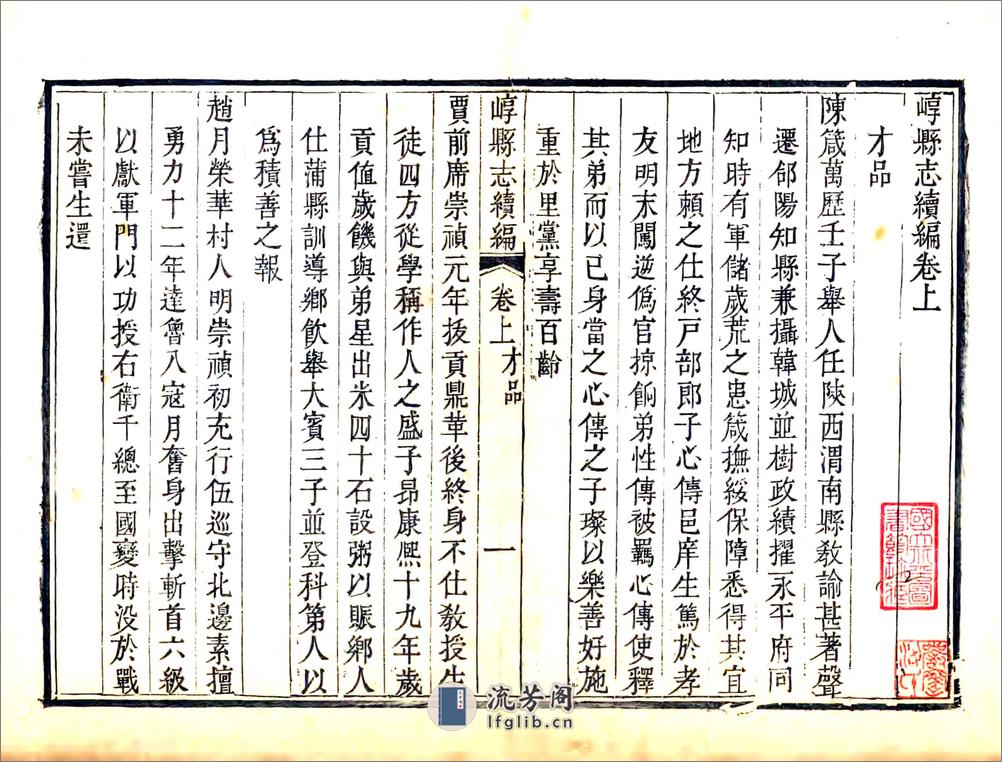 崞縣志續編卷上
才品
陳箴萬歷壬子舉人任陝西渭南縣敎諭甚著聲
遷郃陽知縣兼攝韓城並樹政績擢永平府同
知時有軍儲歲荒之患箴撫綏保障悉得其宜
地方賴之仕終戸部郎子心傳邑庠生篤於孝
友明末闖逆僞官掠餉弟性傳被羈心傳使釋
其弟而以已身當之心傳之子璨以樂善好施
重於里黨享壽百齡
崞縣志續編 卷上 才品 一
賈前席崇禎元年拔貢鼎革後終身不仕敎授生
徒四方從學稱作人之盛子昂康熙十九年歲
貢値歲饑與弟星出米四十石設粥以賑鄉人
仕蒲縣訓導鄉飲舉大賓三子並登科第人以
爲積善之報
趙月榮華村人明崇禎初充行伍巡守北邊素擅
勇力十二年達魯八寇月奮身出擊斬首六級
以獻軍門以功授右衛千總至國變時没於戰
未嘗生還
流芳阁
lfglib.cn